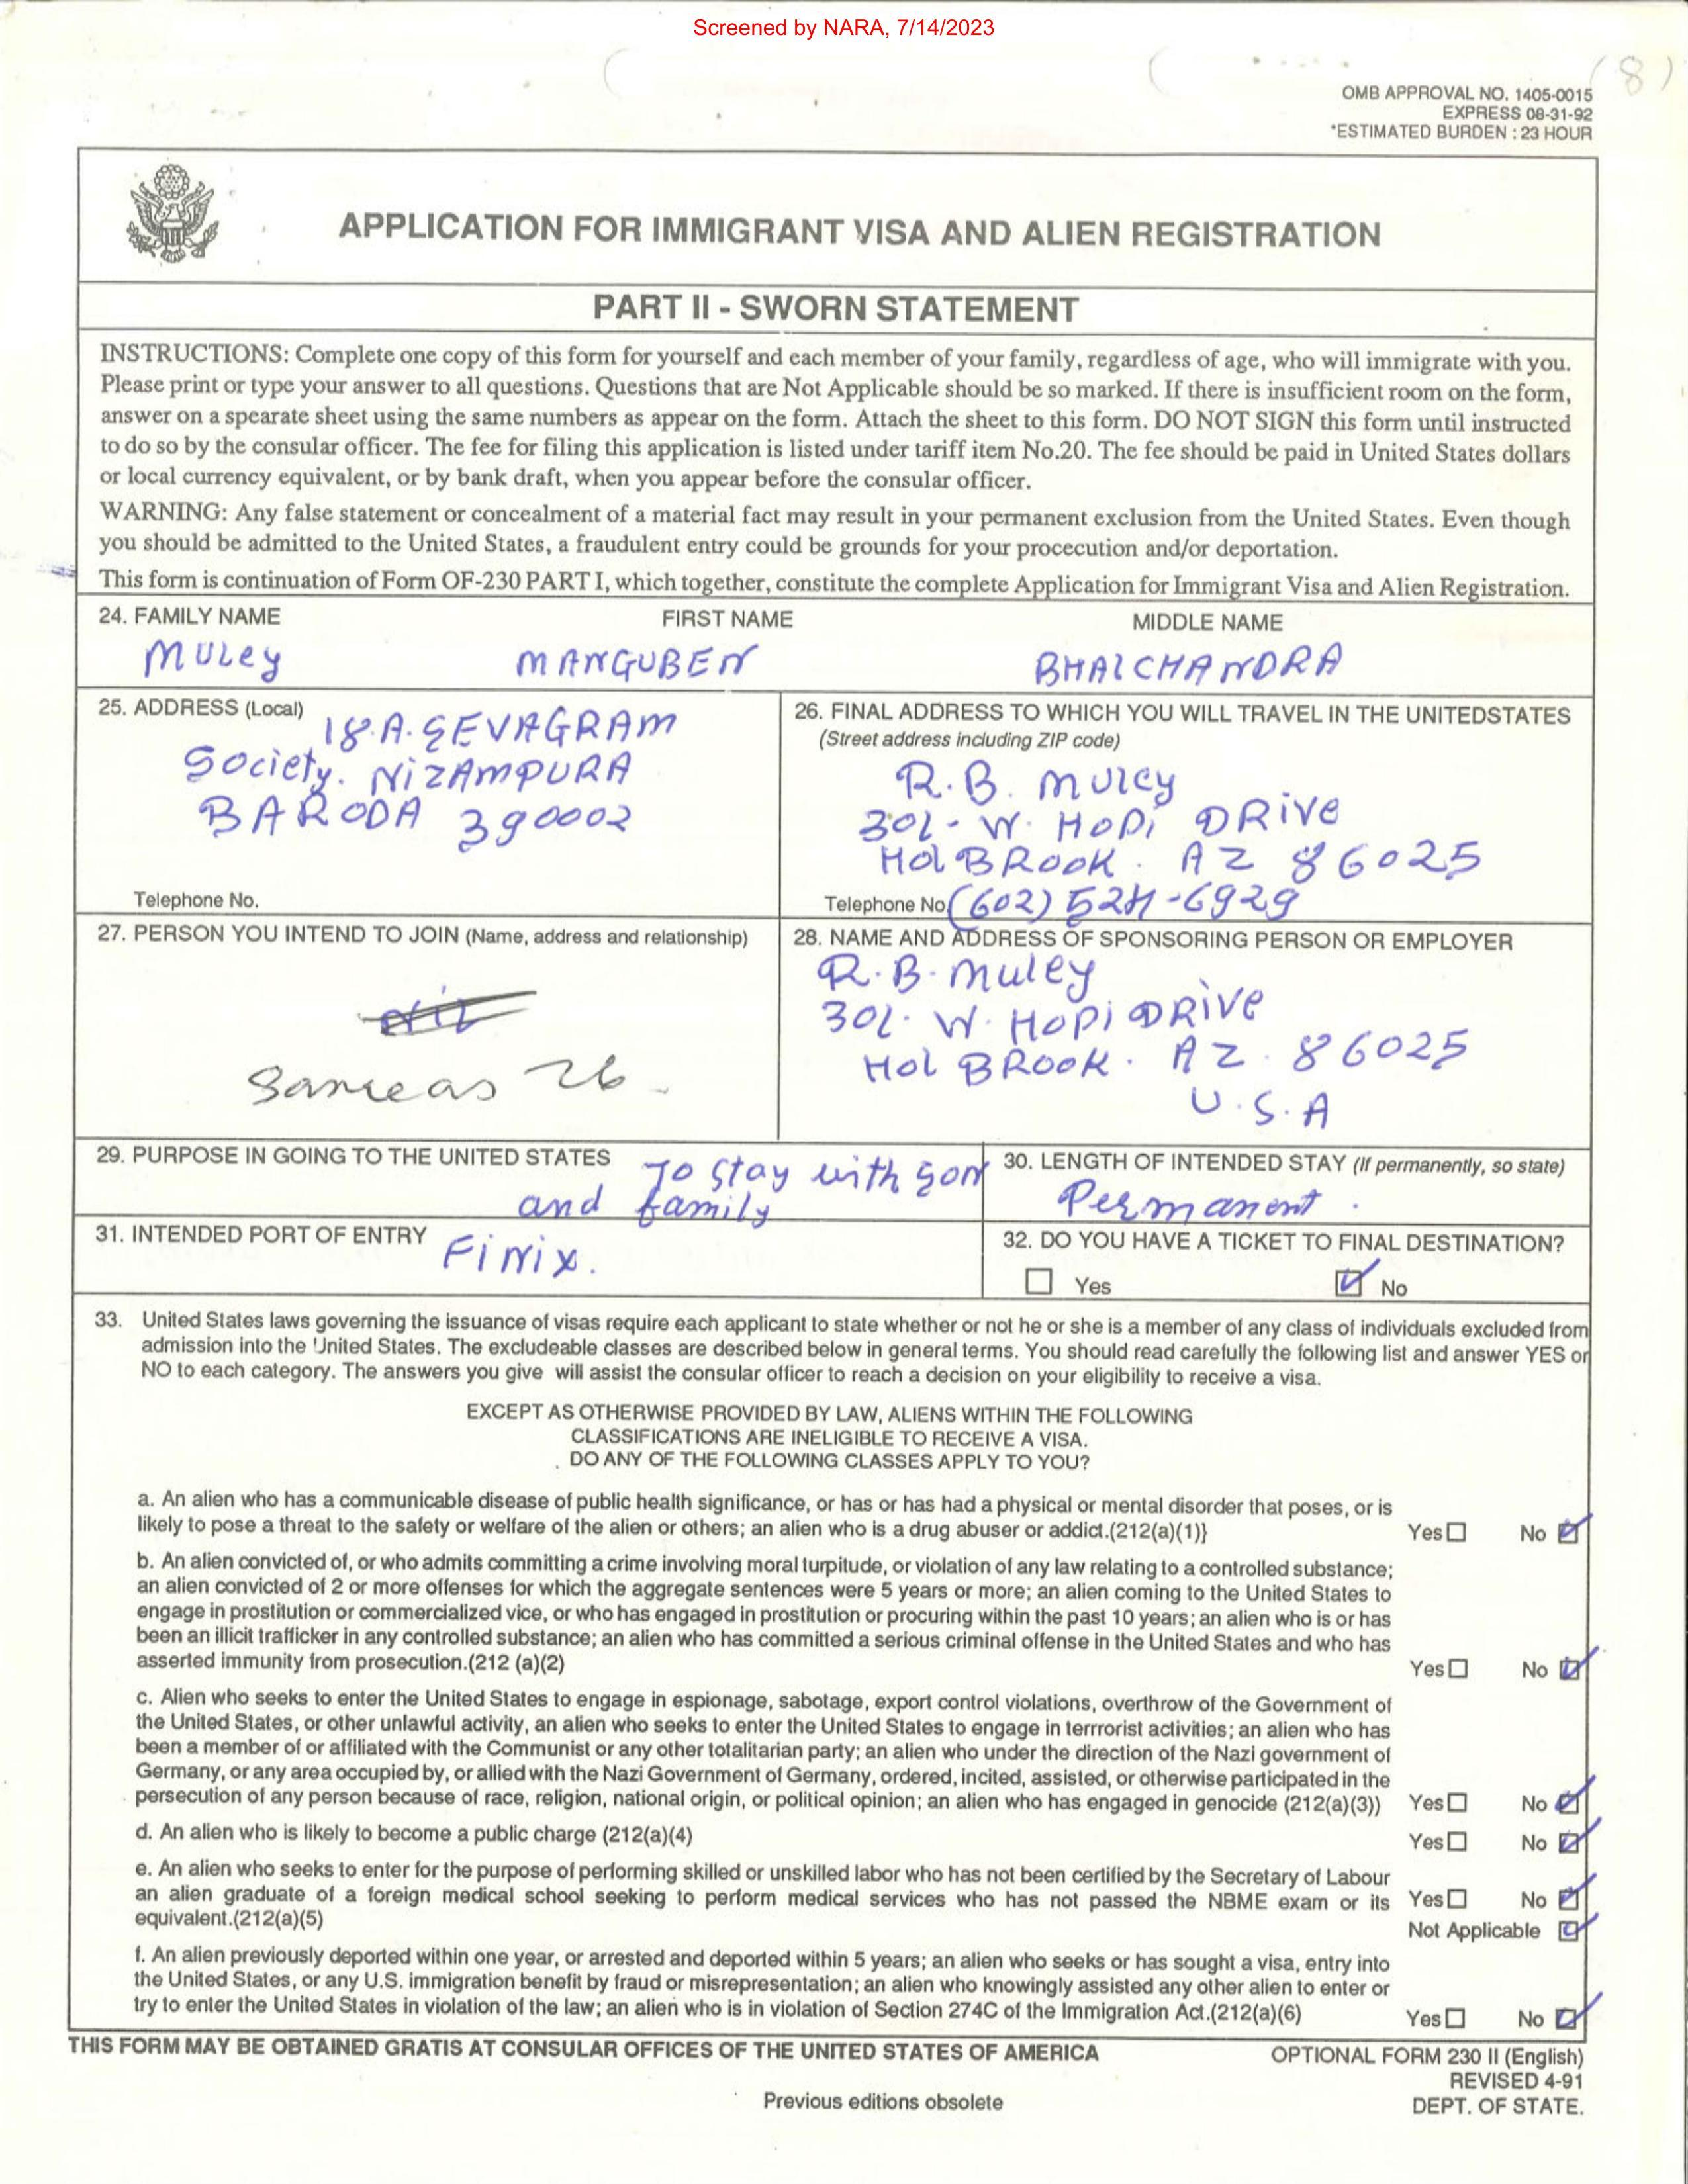 Screened by NARA, 7/14/2023
(8)
OMB APPROVAL NO. 1405-0015
EXPRESS 08-31-92
*ESTIMATED BURDEN : 23 HOUR
APPLICATION FOR IMMIGRANT VISA AND ALIEN REGISTRATION
PART II - SWORN STATEMENT
INSTRUCTIONS: Complete one copy of this form for yourself and each member of your family, regardless of age, who will immigrate with you.
Please print or type your answer to all questions. Questions that are Not Applicable should be so marked. If there is insufficient room on the form,
answer on a spearate sheet using the same numbers as appear on the form. Attach the sheet to this form. DO NOT SIGN this form until instructed
to do so by the consular officer. The fee for filing this application is listed under tariff item No.20. The fee should be paid in United States dollars
or local currency equivalent, or by bank draft, when you appear before the consular officer.
WARNING: Any false statement or concealment of a material fact may result in your permanent exclusion from the United States. Even though
you should be admitted to the United States, a fraudulent entry could be grounds for your procecution and/or deportation.
This form is continuation of Form OF-230 PART I, which together, constitute the complete Application for Immigrant Visa and Alien Registration.
24. FAMILY NAME FIRST NAME MIDDLE NAME
MULEY MANGUBEN BHALCHANDRA
25. ADDRESS (Local)
18.A. SEVAGRAM
Society. NIZAMPURA
BARODA 390002
Telephone No.
26. FINAL ADDRESS TO WHICH YOU WILL TRAVEL IN THE UNITEDSTATES
(Street address including ZIP code)
R.B. MULEY
301- W. HOPI DRIVE
HOLBROOK. AZ 86025
Telephone No. (602) 524-6929
27. PERSON YOU INTEND TO JOIN (Name, address and relationship)
Same as 26
28. NAME AND ADDRESS OF SPONSORING PERSON OR EMPLOYER
R.B. Muley
301. W. HOPI DRIVE
HOLBROOK. AZ. 86025
U.S.A
29. PURPOSE IN GOING TO THE UNITED STATES
To stay with son
and family
30. LENGTH OF INTENDED STAY (If permanently, so state)
Permanent.
31. INTENDED PORT OF ENTRY
Finix.
32. DO YOU HAVE A TICKET TO FINAL DESTINATION?
Yes No
33. United States laws governing the issuance of visas require each applicant to state whether or not he or she is a member of any class of individuals excluded from
admission into the United States. The excludeable classes are described below in general terms. You should read carefully the following list and answer YES or
NO to each category. The answers you give will assist the consular officer to reach a decision on your eligibility to receive a visa.
EXCEPT AS OTHERWISE PROVIDED BY LAW, ALIENS WITHIN THE FOLLOWING
CLASSIFICATIONS ARE INELIGIBLE TO RECEIVE A VISA.
DO ANY OF THE FOLLOWING CLASSES APPLY TO YOU?
a. An alien who has a communicable disease of public health significance, or has or has had a physical or mental disorder that poses, or is
likely to pose a threat to the safety or welfare of the alien or others; an alien who is a drug abuser or addict.(212(a)(1)} Yes No
b. An alien convicted of, or who admits committing a crime involving moral turpitude, or violation of any law relating to a controlled substance;
an alien convicted of 2 or more offenses for which the aggregate sentences were 5 years or more; an alien coming to the United States to
engage in prostitution or commercialized vice, or who has engaged in prostitution or procuring within the past 10 years; an alien who is or has
been an illicit trafficker in any controlled substance; an alien who has committed a serious criminal offense in the United States and who has
asserted immunity from prosecution.(212 (a)(2) Yes No
c. Alien who seeks to enter the United States to engage in espionage, sabotage, export control violations, overthrow of the Government of
the United States, or other unlawful activity, an alien who seeks to enter the United States to engage in terrrorist activities; an alien who has
been a member of or affiliated with the Communist or any other totalitarian party; an alien who under the direction of the Nazi government of
Germany, or any area occupied by, or allied with the Nazi Government of Germany, ordered, incited, assisted, or otherwise participated in the
persecution of any person because of race, religion, national origin, or political opinion; an alien who has engaged in genocide (212(a)(3)) Yes No
d. An alien who is likely to become a public charge (212(a)(4) Yes No
e. An alien who seeks to enter for the purpose of performing skilled or unskilled labor who has not been certified by the Secretary of Labour
an alien graduate of a foreign medical school seeking to perform medical services who has not passed the NBME exam or its Yes No
equivalent.(212(a)(5) Not Applicable
f. An alien previously deported within one year, or arrested and deported within 5 years; an alien who seeks or has sought a visa, entry into
the United States, or any U.S. immigration benefit by fraud or misrepresentation; an alien who knowingly assisted any other alien to enter or
try to enter the United States in violation of the law; an alien who is in violation of Section 274C of the Immigration Act.(212(a)(6) Yes No
THIS FORM MAY BE OBTAINED GRATIS AT CONSULAR OFFICES OF THE UNITED STATES OF AMERICA
OPTIONAL FORM 230 II (English)
REVISED 4-91
DEPT. OF STATE.
Previous editions obsolete